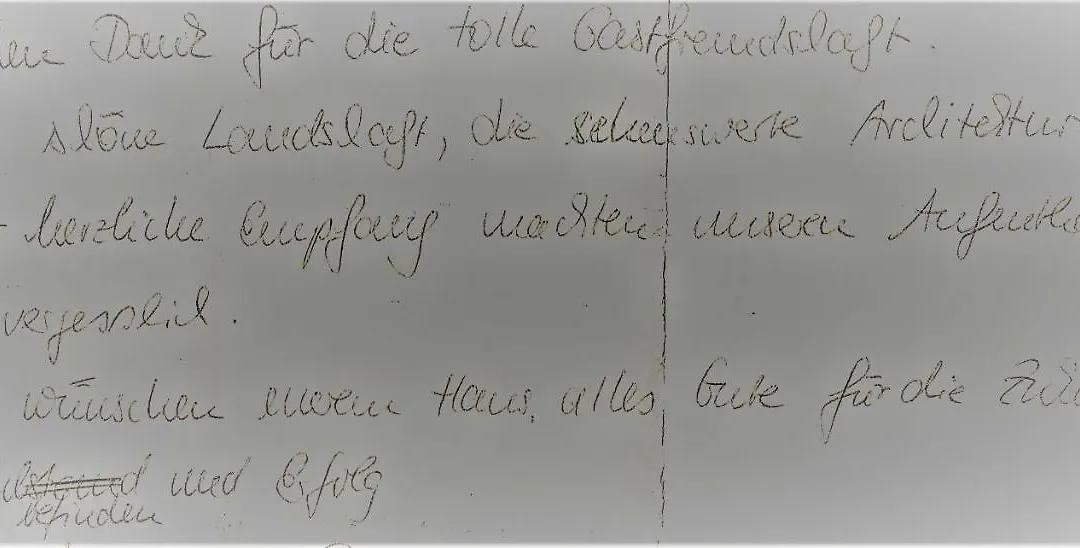 len Dank für die tolle Gastfreundschaft.
schöne Landschaft, die sehenswerte Architektur
herzliche Empfang machten unseren Aufentha
vergesslich.
wünschen eurem Haus, alles Gute für die Zuk
und Erfolg
befinden